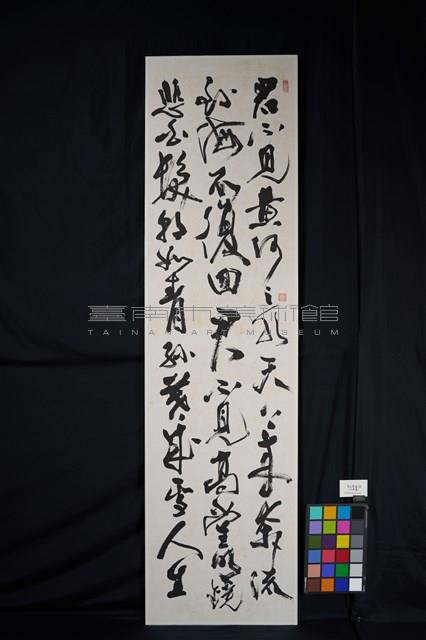 君不見黃河之水天上來奔流
到海不復回君不見高堂明鏡
悲白髮朝如青絲暮成雪人生
臺南市美術館
TAINAN ART MUSEUM